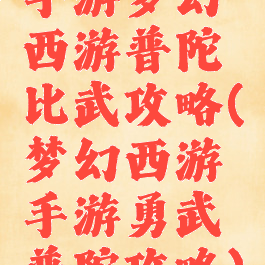 手游梦幻
西游普陀
比武攻略(
梦幻西游
手游勇武
普陀攻略)